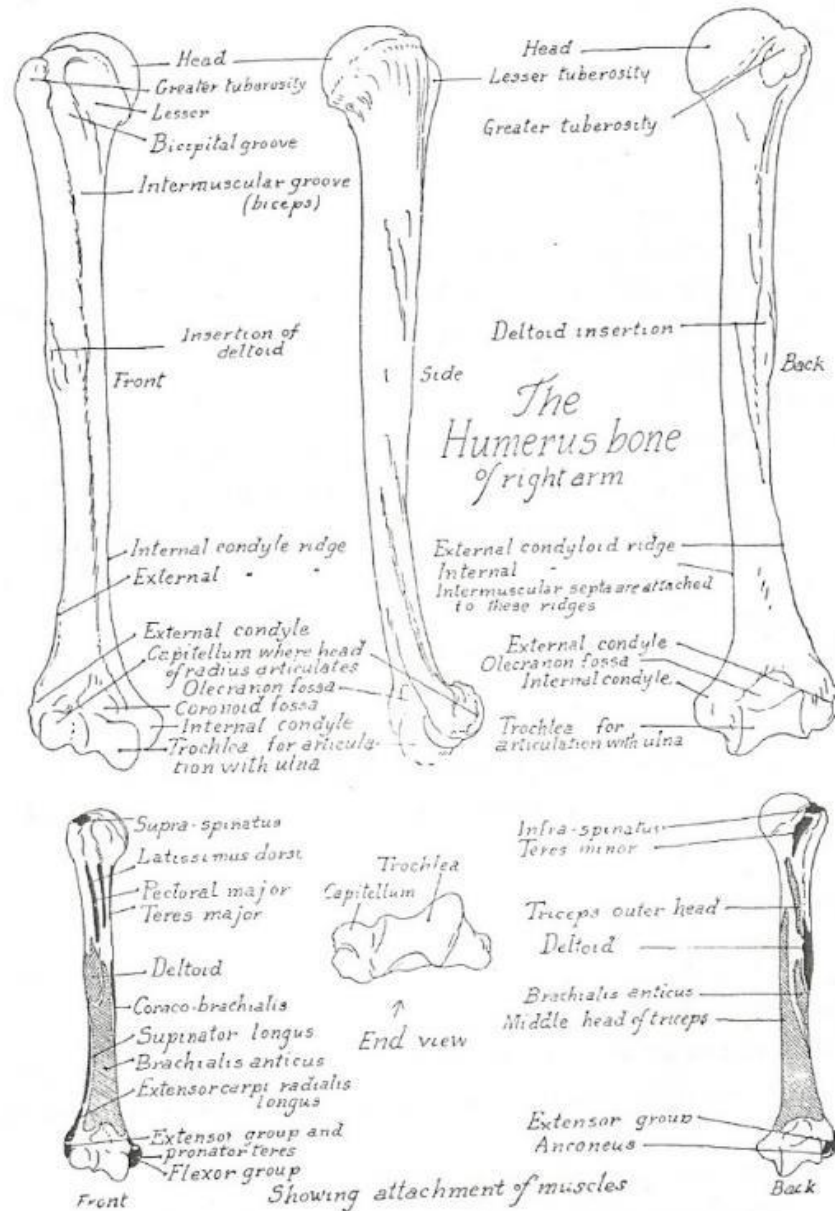 Head
Greater tuberosity
Lesser
Bicipital groove
Intermuscular groove
(biceps)
Insertion of
deltoid
Front
Internal condyle ridge
External " "
External condyle
Capitellum where head
of radius articulates
Olecranon fossa
Coronoid fossa
Internal condyle
Trochlea for articula-
tion with ulna
Side
Head
Lesser tuberosity
Greater tuberosity
Deltoid insertion
Back
The
Humerus bone
of right arm
External condyloid ridge
Internal "
Intermuscular septa are attached
to these ridges
External condyle
Olecranon fossa
Internal condyle
Trochlea for
articulation with ulna
Supra-spinatus
Latissimus dorsi
Pectoral major
Teres major
Deltoid
Coraco-brachialis
Supinator longus
Brachialis anticus
Extensor carpi radialis
longus
Extensor group and
pronator teres
Flexor group
Front
Trochlea
Capitellum
End view
Infra-spinatus
Teres minor
Triceps outer head
Deltoid
Brachialis anticus
Middle head of triceps
Extensor group
Anconeus
Back
Showing attachment of muscles